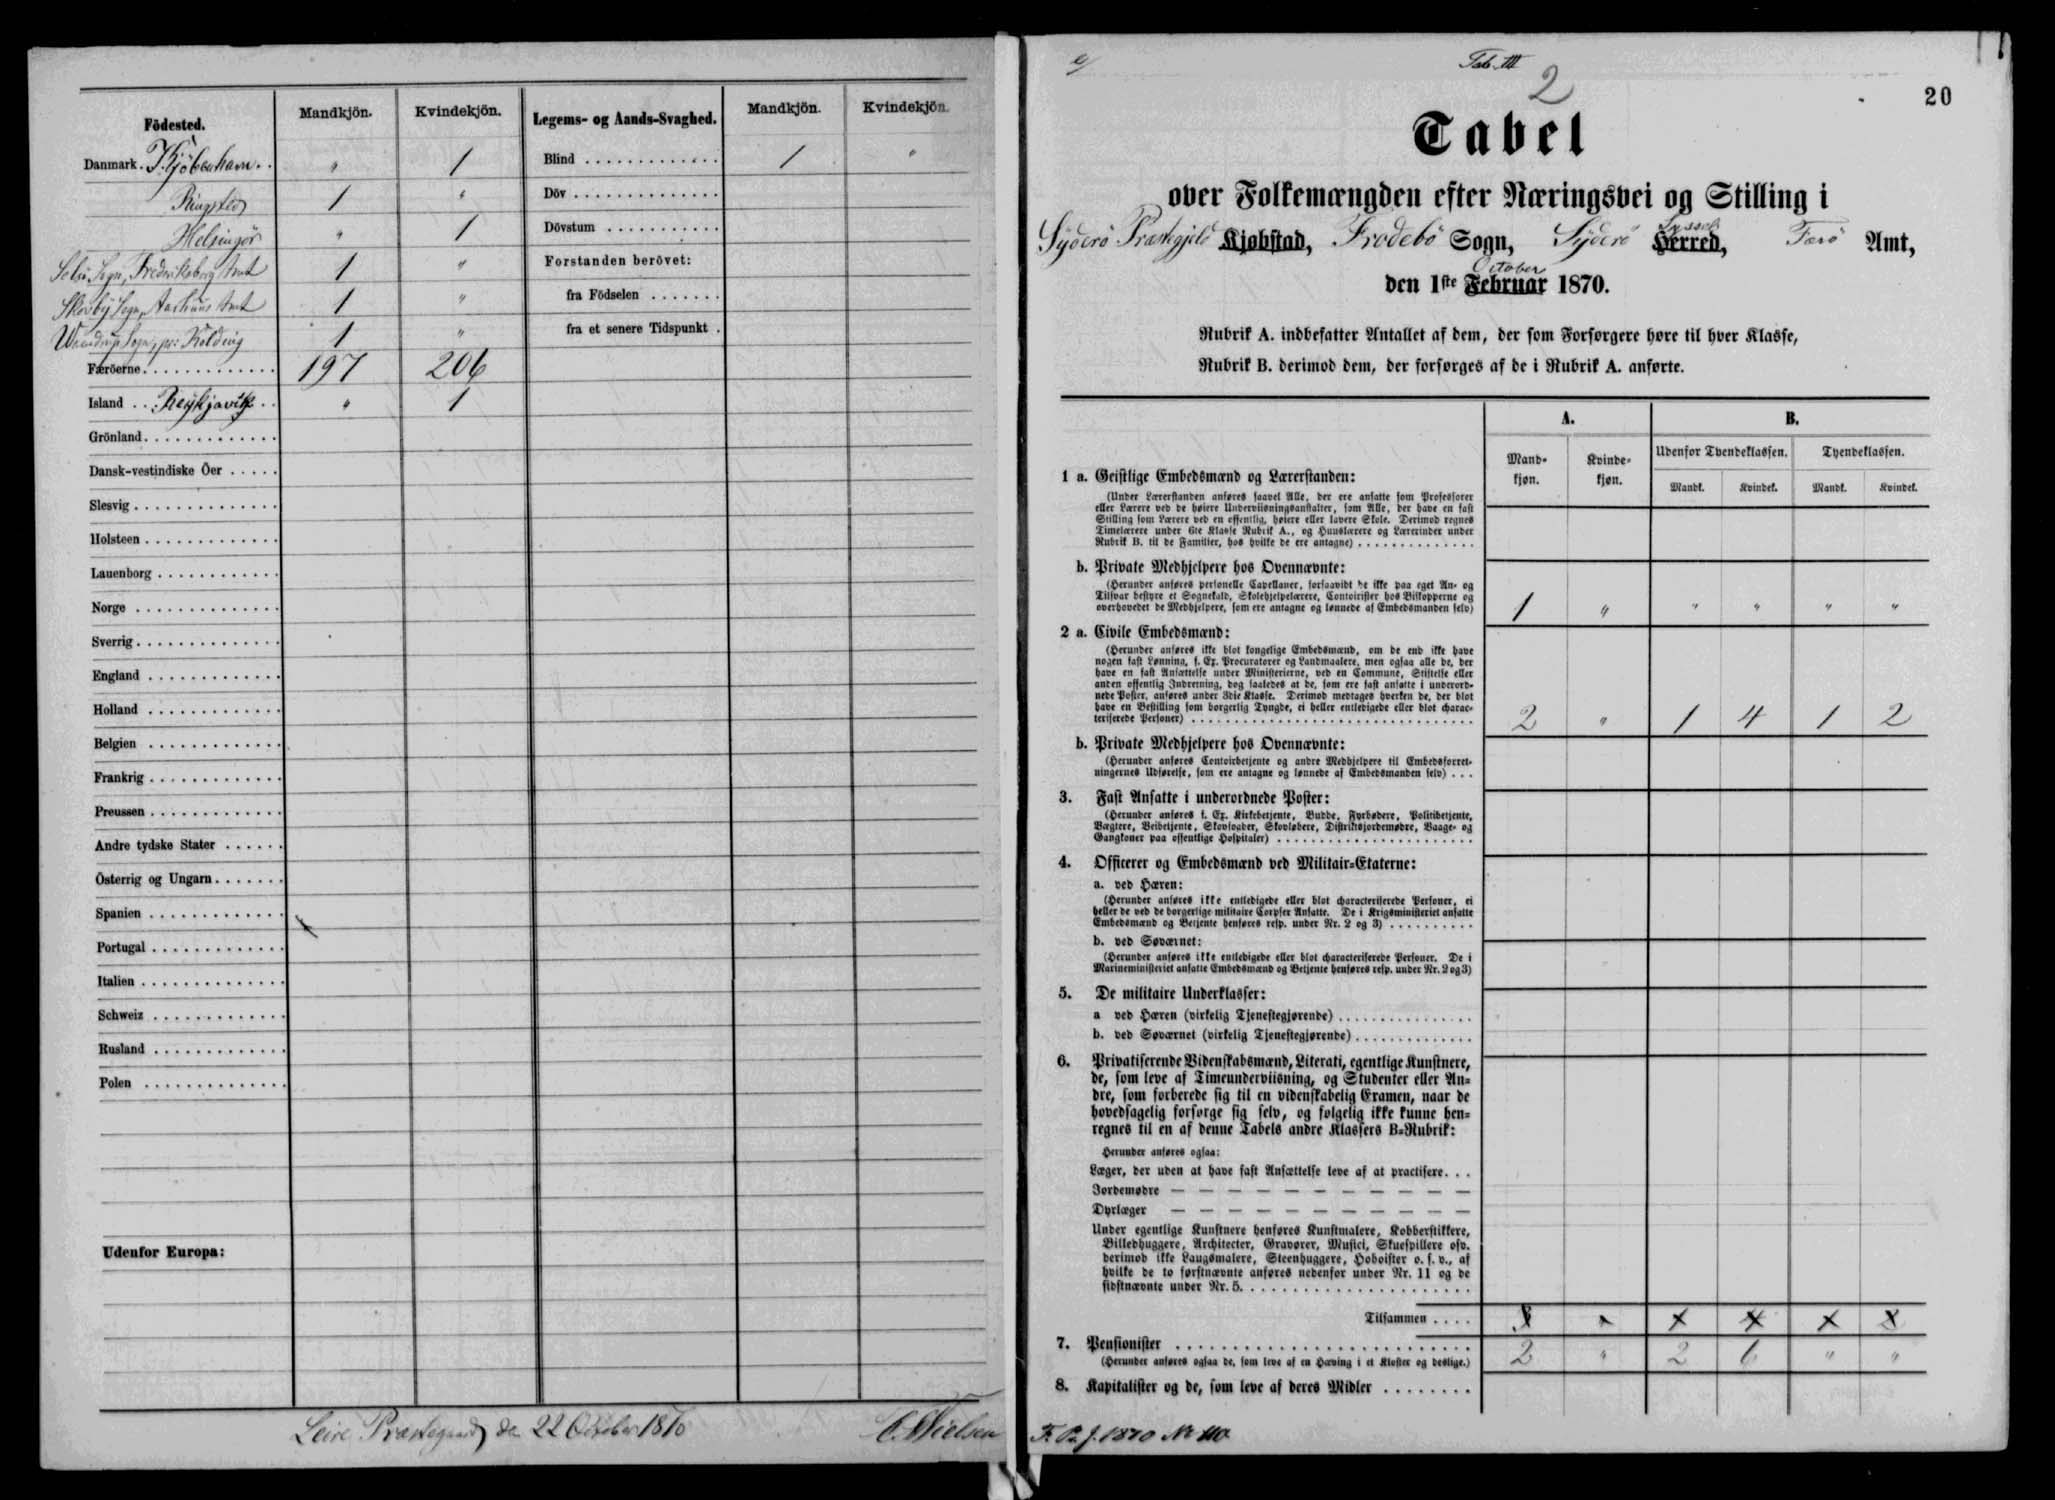 Födested. Mandkjön. Kvindekjön. Legems- og Aands-Svaghed. Mandkjön. Kvindekjön.
Danmark. Kjöbenhavn. " 1 Blind 1 "
Ringsted 1 " Döv
Helsingör " 1 Dövstum
Sogn, Frederiksborg Amt 1 " Forstanden berövet:
Skovby Sogn, Aarhuus Amt 1 " fra Födselen
Sogn, pr: Kolding 1 " fra et senere Tidspunkt .
Færöerne 197 206
Island . . . Reykjavik . . " 1
Grönland
Dansk-vestindiske Öer
Slesvig
Holsteen
Lauenborg
Norge
Sverrig
England
Holland
Belgien
Frankrig
Preussen
Andre tydske Stater
Österrig og Ungarn
Spanien
Portugal
Italien
Schweiz
Rusland
Polen
Udenfor Europa:
Leire Præstegaard den 22 October 1870 C. Nielsen
Tab. III
2
20
Tabel
over Folkemængden efter Næringsvei og Stilling i
Syderö Præstegjeld Kjøbstad, Frodebö Sogn, Syderö Syssel Herred, Færö Amt,
October
den 1ste Februar 1870.
Rubrik A. indbefatter Antallet af dem, der som Forsørgere høre til hver Klasse,
Rubrik B. derimod dem, der forsørges af de i Rubrik A. anførte.
A. B.
Mandkjøn. Kvindekjøn. Udenfor Tyendeklassen. Tyendeklassen.
Mandk. Kvindek. Mandk. Kvindek.
1 a. Geistlige Embedsmænd og Lærerstanden:
(Under Lærerstanden anføres saavel Alle, der ere ansatte som Professorer
eller Lærere ved de høiere Underviisningsanstalter, som Alle, der have en fast
Stilling som Lærere ved en offentlig, høiere eller lavere Skole. Derimod regnes
Timelærere under 6te Klasse Rubrik A., og Huuslærere og Lærerinder under
Rubrik B. til de Familier, hos hvilke de ere antagne)
b. Private Medhjelpere hos Ovennævnte:
(Herunder anføres personelle Capellaner, forsaavidt de ikke paa eget An- og
Tilsvar bestyre et Sognekald, Skolehjelpelærere, Contoirister hos Biskopperne og
overhovedet de Medhjelpere, som ere antagne og lønnede af Embedsmanden selv) 1 " " " " "
2 a. Civile Embedsmænd:
(Herunder anføres ikke blot kongelige Embedsmænd, om de end ikke have
nogen fast Lønning, f. Ex. Procuratorer og Landmaalere, men ogsaa alle de, der
have en fast Ansættelse under Ministerierne, ved en Commune, Stiftelse eller
anden offentlig Indretning, dog saaledes at de, som ere fast ansatte i underord-
nede Poster, anføres under 3die Klasse. Derimod medtages hverken de, der blot
have en Bestilling som borgerlig Tyngde, ei heller entledigede eller blot charac-
teriserede Personer) 2 " 1 4 1 2
b. Private Medhjelpere hos Ovennævnte:
(Herunder anføres Contoirbetjente og andre Medhjelpere til Embedsforret-
ningernes Udførelse, som ere antagne og lønnede af Embedsmanden selv) . . .
3. Fast Ansatte i underordnede Poster:
(Herunder anføres f. Ex. Kirkebetjente, Budde, Fyrbødere, Politibetjente,
Vægtere, Veibetjente, Skovfogder, Skovløbere, Distriktsjordemødre, Vaage- og
Gangkoner paa offentlige Hospitaler)
4. Officerer og Embedsmænd ved Militair-Etaterne:
a. ved Hæren:
(Herunder anføres ikke entledigede eller blot characteriserede Personer, ei
heller de ved de borgerlige militaire Corpser Ansatte. De i Krigsministeriet ansatte
Embedsmænd og Betjente henføres resp. under Nr. 2 og 3)
b. ved Søværnet:
(Herunder anføres ikke entledigede eller blot characteriserede Personer. De i
Marineministeriet ansatte Embedsmænd og Betjente henføres resp. under Nr. 2 og 3)
5. De militaire Underklasser:
a ved Hæren (virkelig Tjenestegjørende)
b. ved Søværnet (virkelig Tjenestegjørende)
6. Privatiserende Videnskabsmænd, Literati, egentlige Kunstnere,
de, som leve af Timeunderviisning, og Studenter eller An-
dre, som forberede sig til en videnskabelig Examen, naar de
hovedsagelig forsørge sig selv, og følgelig ikke kunne hen-
regnes til en af denne Tabels andre Klassers B-Rubrik:
Herunder anføres ogsaa:
Læger, der uden at have fast Ansættelse leve af at practisere. . .
Jordemødre — — — — — — — — — — —
Dyrlæger — — — — — — — — — — —
Under egentlige Kunstnere henføres Kunstmalere, Kobberstikkere,
Billedhuggere, Architecter, Gravører, Musici, Skuespillere osv.
derimod ikke Laugsmalere, Steenhuggere, Hoboister o. s. v., af
hvilke de to førstnævnte anføres nedenfor under Nr. 11 og de
sidstnævnte under Nr. 5.
Tilsammen . . . .
7. Pensionister 2 " 2 6 " "
(Herunder anføres ogsaa de, som leve af en Hæving i et Kloster og deslige.)
8. Kapitalister og de, som leve af deres Midler
F. P. J. 1870 No 110